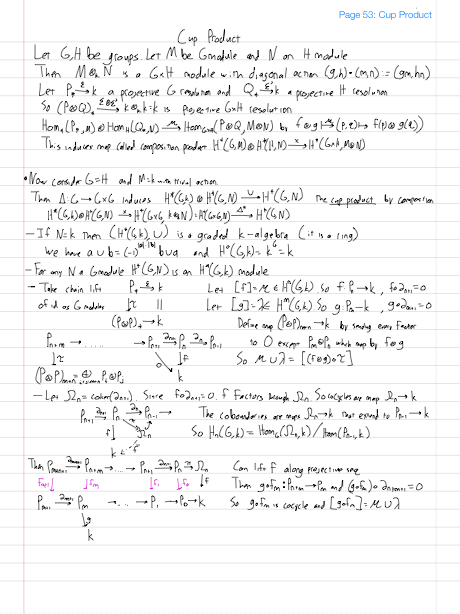 Page 53: Cup Product
Cup Product
Let G,H be groups. Let M be G module and N an H module
Then M⊗ₖN is a G×H module with diagonal action (g,h)·(m,n) := (gm,hn)
Let P_* →ε k a projective G resolution and Q_* →ε' k a projective H resolution
So (P⊗Q)_* →ε⊗ε' k⊗ₖk=k is projective G×H resolution
Hom_G(P_*,M)⊗Hom_H(Q_*,N) → Hom_{G×H}(P⊗Q,M⊗N) by f⊗g ↦ (p,q) ↦ f(p)⊗g(q)
This induces map called composition product H*(G,M)⊗H*(H,N) →× H*(G×H,M⊗N)
• Now consider G=H and M=k with trivial action
Then Δ:G→G×G induces H*(G,k)⊗H*(G,N) →∪ H*(G,N) the cup product by composition
H*(G,k)⊗H*(G,N) →× H*(G×G,k⊗N)=H*(G×G,N) →Δ* H*(G,N)
- If N=k then (H*(G,k),∪) is a graded k-algebra (it is a ring)
We have a∪b=(-1)^{|a||b|} b∪a and H⁰(G,k)=k^G=k
- For any N a G module H*(G,N) is an H*(G,k) module
- Take chain lift P_* →ε k Let [f]=μ∈Hⁿ(G,k) so f:Pₙ→k, f∘∂ₙ₊₁=0
of id as G modules ↓τ || Let [g]=λ∈Hᵐ(G,k) so g:Pₘ→k, g∘∂ₘ₊₁=0
(P⊗P)_* → k Define map (P⊗P)ₘ₊ₙ→k by sending every factor
Pₙ₊ₘ → ...... → Pₙ₊₁ →∂ₙ₊₁ Pₙ →∂ₙ Pₙ₋₁ to 0 except Pₙ⊗Pₘ which map by f⊗g
↓τ ↓f So μ∪λ=[(f⊗g)∘τ]
(P⊗P)ₘ₊ₙ=⊕ Pᵢ⊗Pⱼ k
- Let Ωₙ=coker(∂ₙ₊₁). Since f∘∂ₙ₊₁=0, f factors through Ωₙ. So cocycles are maps Ωₙ→k
Pₙ₊₁ →∂ₙ₊₁ Pₙ →∂ₙ Pₙ₋₁ → The coboundaries are maps Ωₙ→k that extend to Pₙ₋₁→k
f↓ Ωₙ So Hₙ(G,k)=Hom_G(Ωₙ,k)/Hom(Pₙ₋₁,k)
k
Then Pₘ₊ₙ₊₁ → Pₙ₊ₘ → ... → Pₙ₊₁ →∂ₙ₊₁ Pₙ → Ωₙ Can lift f along projective seq
fₘ₊₁↓ ↓fₘ ↓f₁ ↓f₀ ↓f Then g∘fₘ:Pₙ₊ₘ→k and (g∘fₘ)∘∂ₙ₊ₘ₊₁=0
Pₘ₊₁ →∂ₘ₊₁ Pₘ → ... → P₁ → P₀ → k So g∘fₘ is cocycle and [g∘fₘ]=μ∪λ
↓g
k